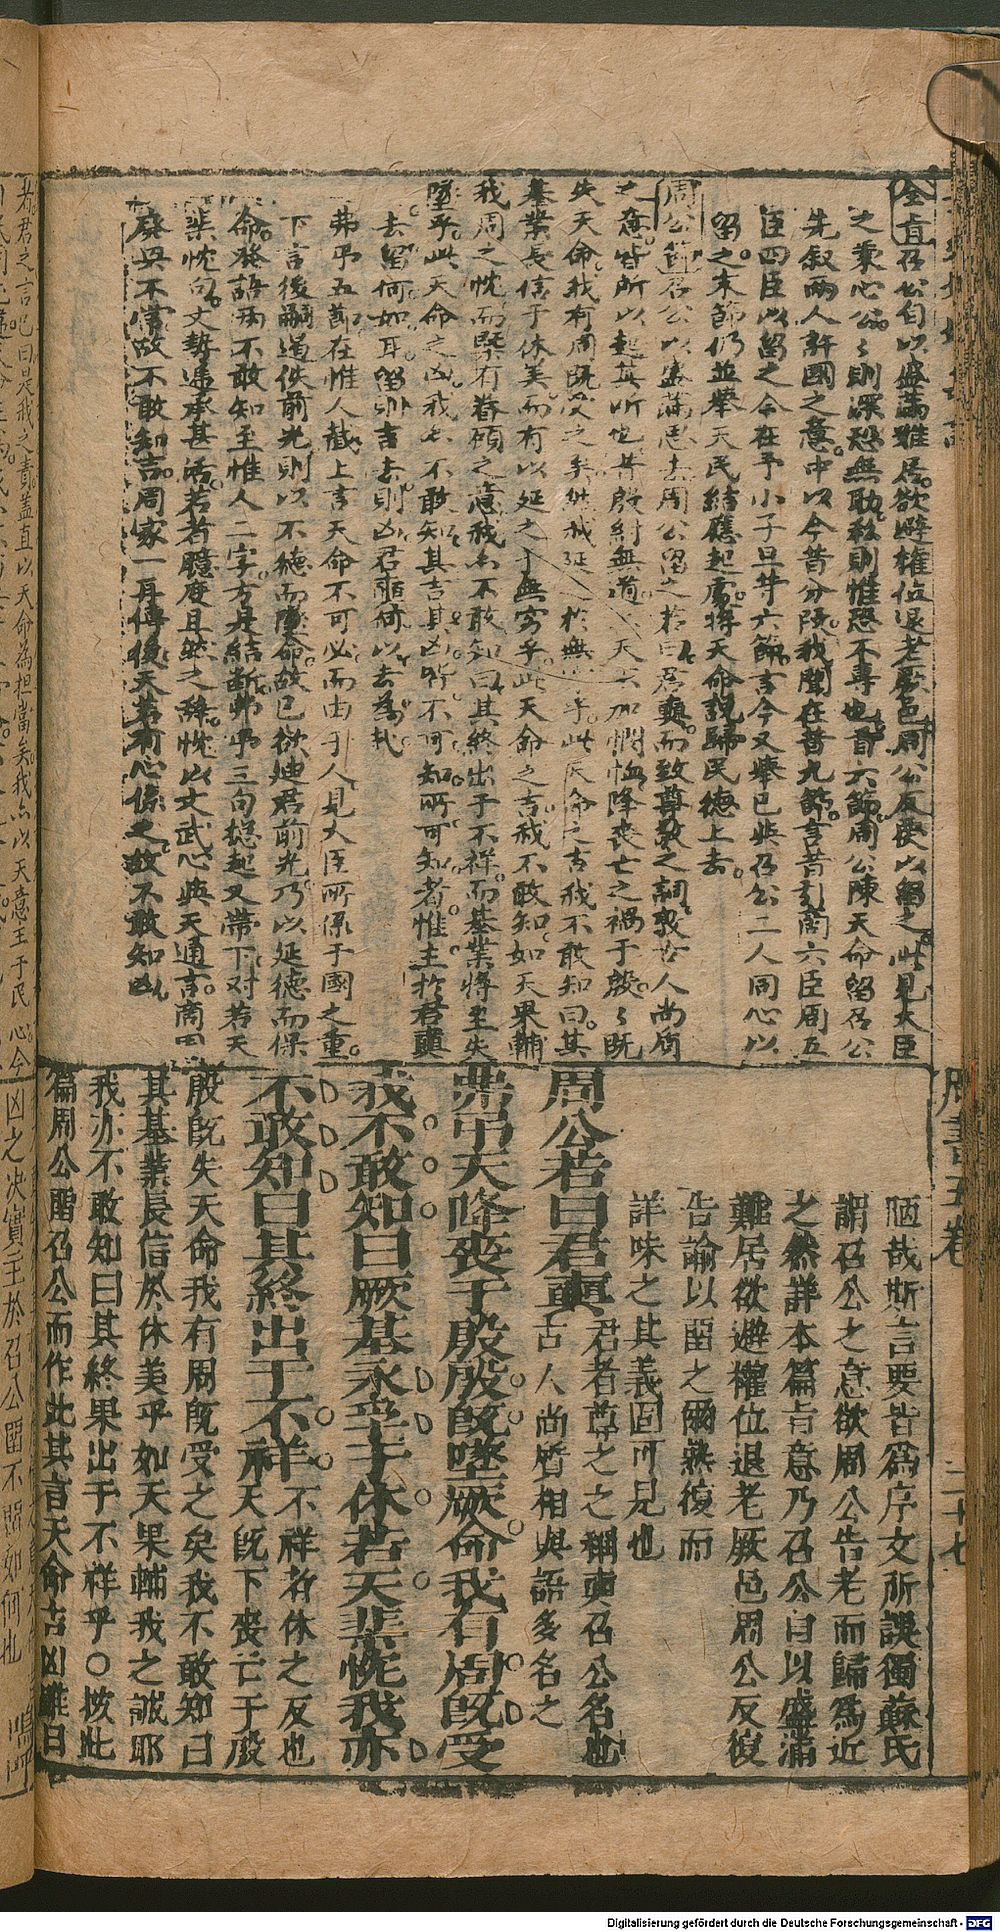 全旨召公自以盛滿難居欲避權位退老厥邑周公反復以留之此見大臣
之秉心公公則深恐無耽私則惟恐不專也首六節周公陳天命留召公
先叙兩人許國之意中以今昔分段我聞在昔九節言昔引商六臣周五
臣四臣以留之今在予小子旦等六節言今又舉己與召公二人同心以
留之末節仍並舉天民結應起處將天命說歸民德上去
周公節召公以盛滿思去周公留之若曰君奭而致尊敬之詞蓋古人尚質
之意皆所以起其聽也昔殷紂無道天不加憫恤降喪亡之禍于殷殷既
失天命我有周既受之矣
基業長信于休美而有以延之于無窮乎此天命之吉我不敢知如天果輔
我周之忱而堅有眷顧之意我亦不敢知曰其終出于不祥而基業將至失
墜乎此天命之凶我亦不敢知其吉其凶皆不可知所可知者惟主於君奭
去留何如耳留則吉去則凶君爾何以去為哉
弗弔五節在惟人截上言天命不可必而由于人見大臣所係于國之重
下言後嗣遏佚前光則以不德而墜命故己欲廸君前光乃以延德而保
命發語兩不敢知至惟人二字方是結斷弗弔三句總起又帶下對若天
棐忱句文勢遞承甚活若者臆度且然之辭忱以文武心與天通言商周
廢興不常故不敢知吉周家一再傳後天若有心係之故不敢知凶
周書五卷 二十七
陋哉斯言要皆為序文所誤獨蘇氏
謂召公之意欲周公告老而歸為近
之然詳本篇旨意乃召公自以盛滿
難居欲避權位退老厥邑周公反復
告諭以留之爾熟復而
詳味之其義固可見也
周公若曰君奭 君者尊之之稱奭召公名也
古人尚質相與語多名之
弗弔天降喪于殷殷既墜厥命我有周既受
我不敢知曰厥基永孚于休若天棐忱我亦
不敢知曰其終出于不祥 不祥者休之反也
天既下喪亡于殷
殷既失天命我有周既受之矣我不敢知曰
其基業長信於休美乎如天果輔我之誠耶
我亦不敢知曰其終果出于不祥乎○按此
篇周公留召公而作此其言天命吉凶雖曰
Digitalisierung gefördert durch die Deutsche Forschungsgemeinschaft - DFG